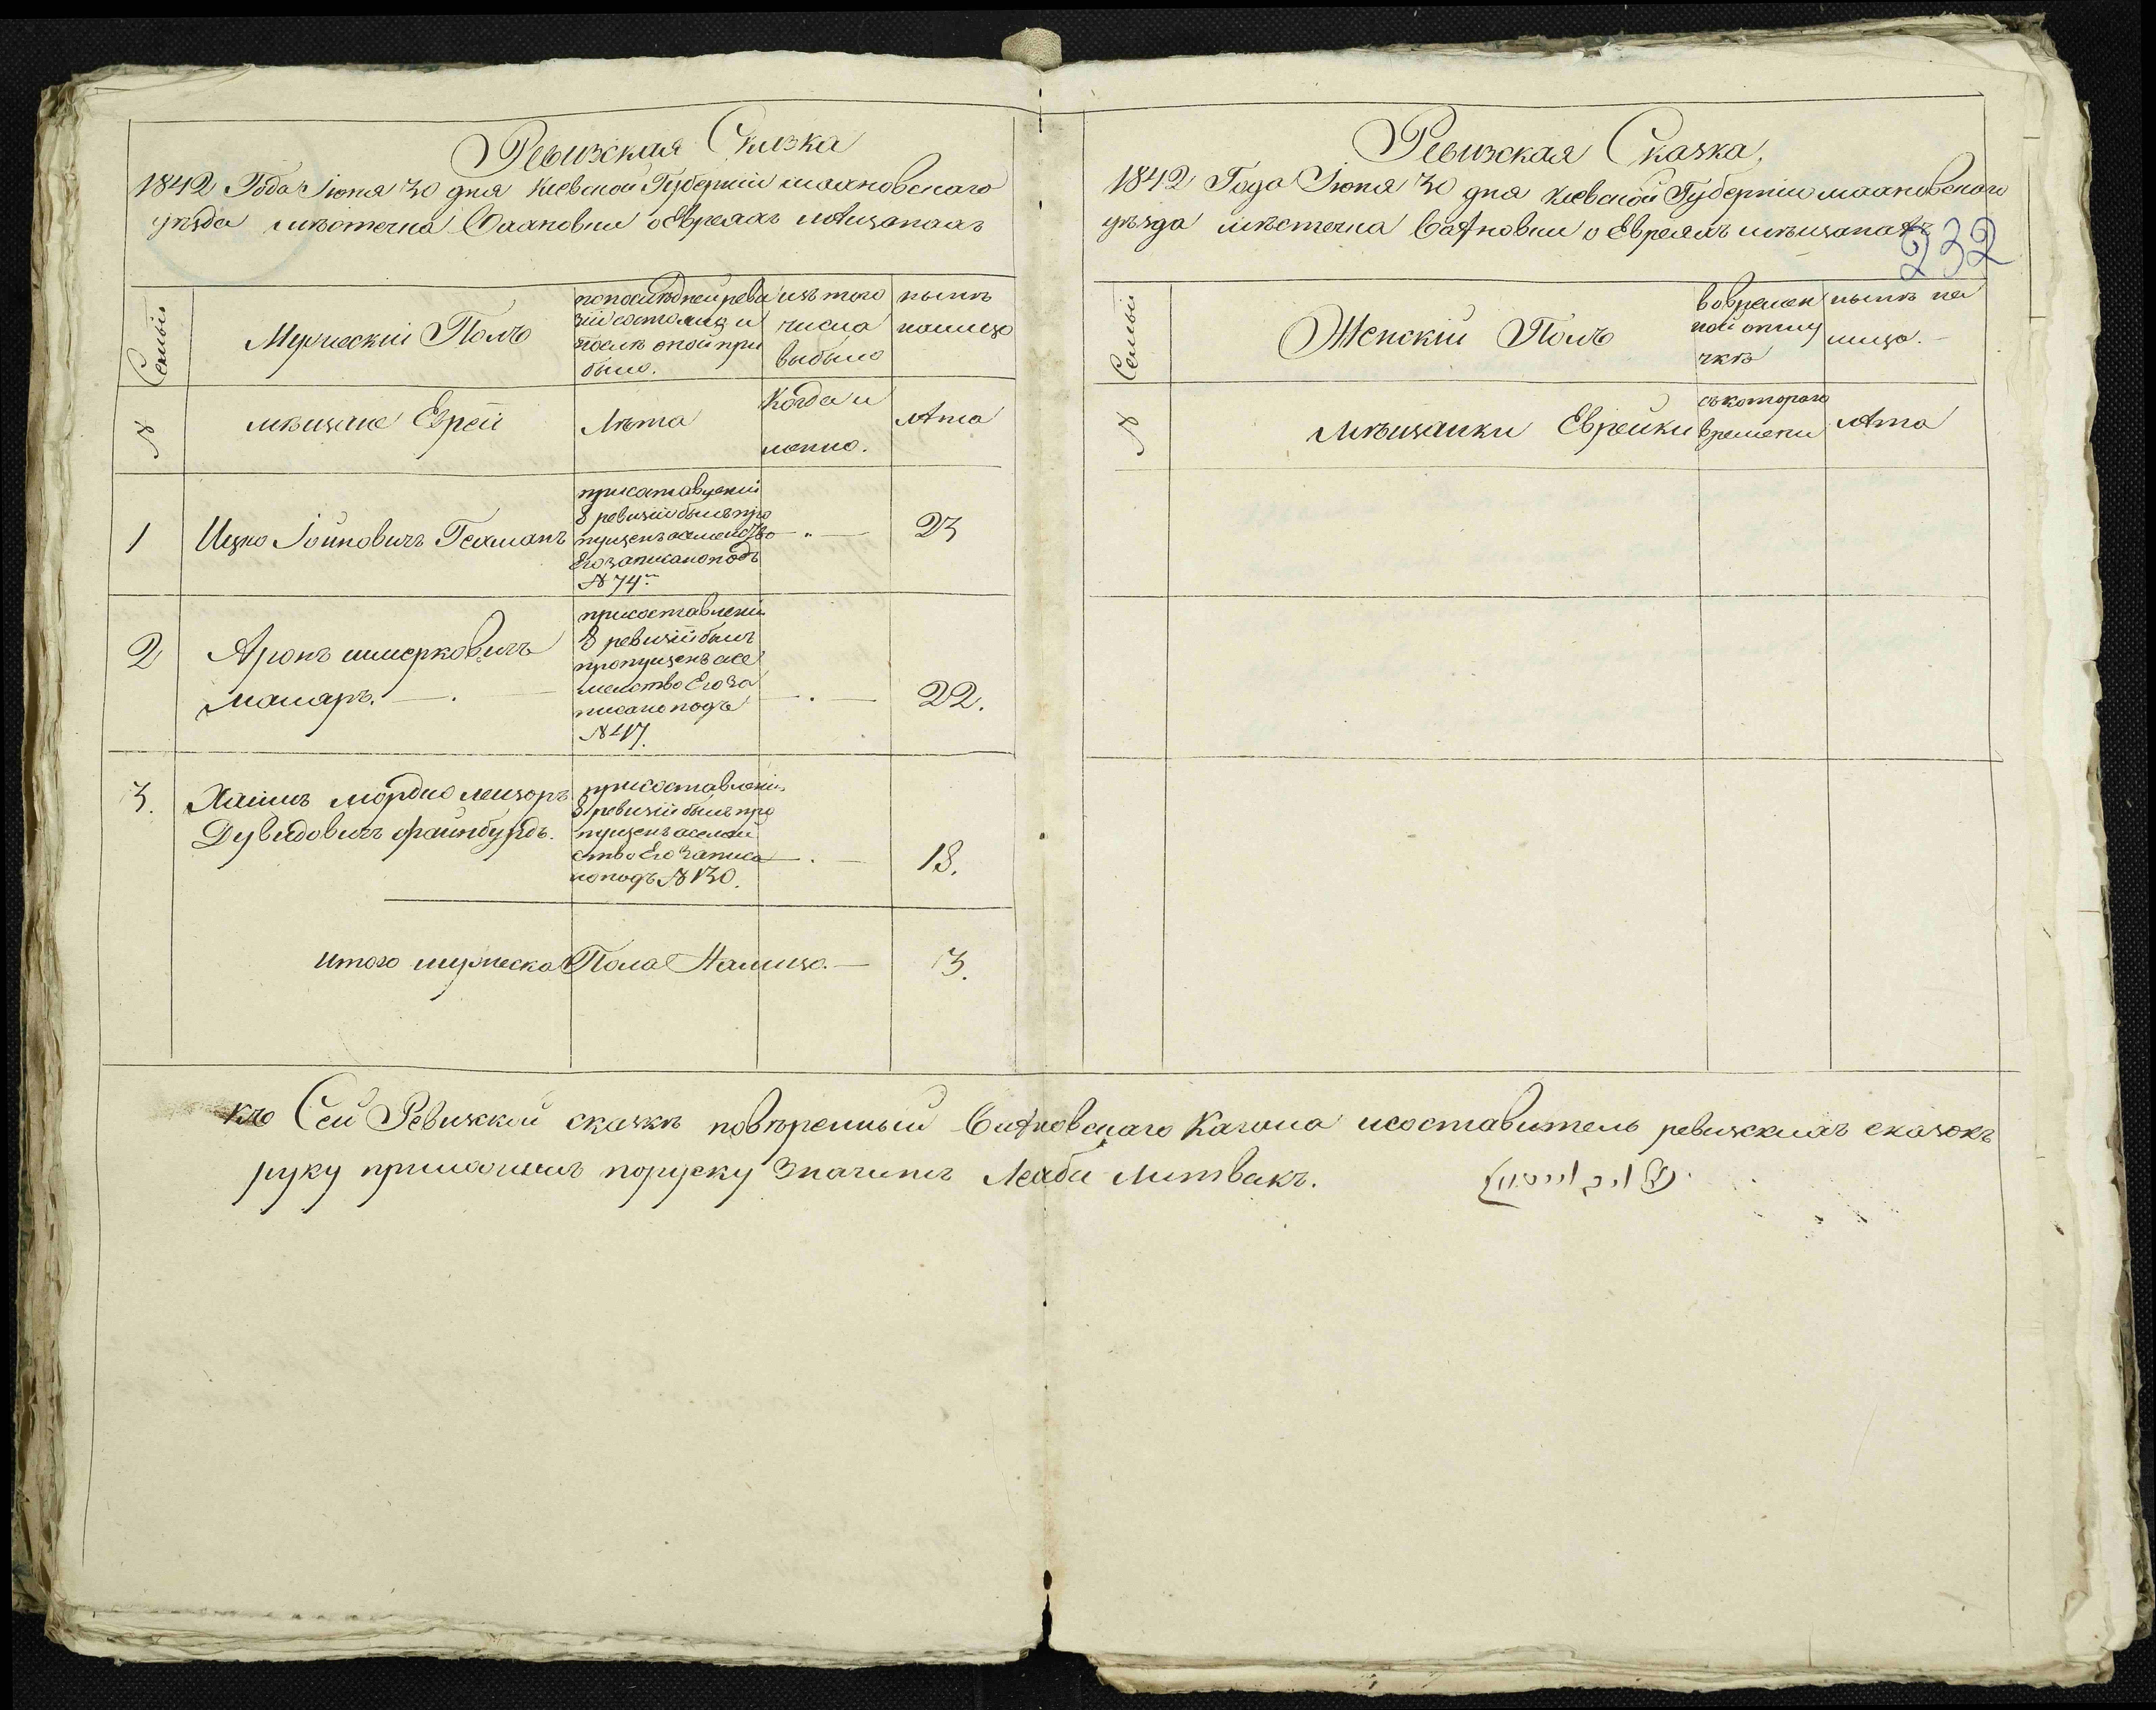 Ревизская Сказка
1842 Года Июня 30 дня Киевской Губернии махновского
уѣзда мѣстечка Бѣлиловки о Евреяхъ мѣщанахъ
№ Семьи
Мужеский Полъ
по последней реви
зіи состояло и
после оной при
было.
изъ того
числа
выбыло
нынѣ
на лицо
мѣщане Евреи
Лѣта
Когда и
менно.
лѣта
1
Ицко Іойновичъ Гехманъ
при составлении
8 ревизіи былъ про
пущенъ а семейство
Его записано подъ
№ 74м
23
2
Аронъ шмерковичъ
маляръ.
при составлении
8 ревизіи былъ
пропущенъ а се
мейство Его за
писано подъ
№ 47.
22.
3.
Хаимъ мордко лейзоръ
Дувидовичъ файнбурдъ.
при составлении
8 ревизіи былъ про
пущенъ а семей
ство Его записа
но подъ № 130.
18.
Итого мужеска Пола На лицо.
3.
Ревизская Сказка,
1842 Года Июня 30 дня Киевской Губернии махновского
уѣзда мѣстечка о Евреяхъ мѣщанахъ
232
№ Семьи
Женскій Полъ
во времен
ной отлу
чкѣ
нынѣ на
лицо.
Мѣщанки Еврейки
съ котораго
времени
лѣта
Къ Сей Ревизской сказкѣ повѣренный Кагала и составитель ревизскихъ сказокъ
руку приложилъ по руску значитъ Лейба Литвакъ.